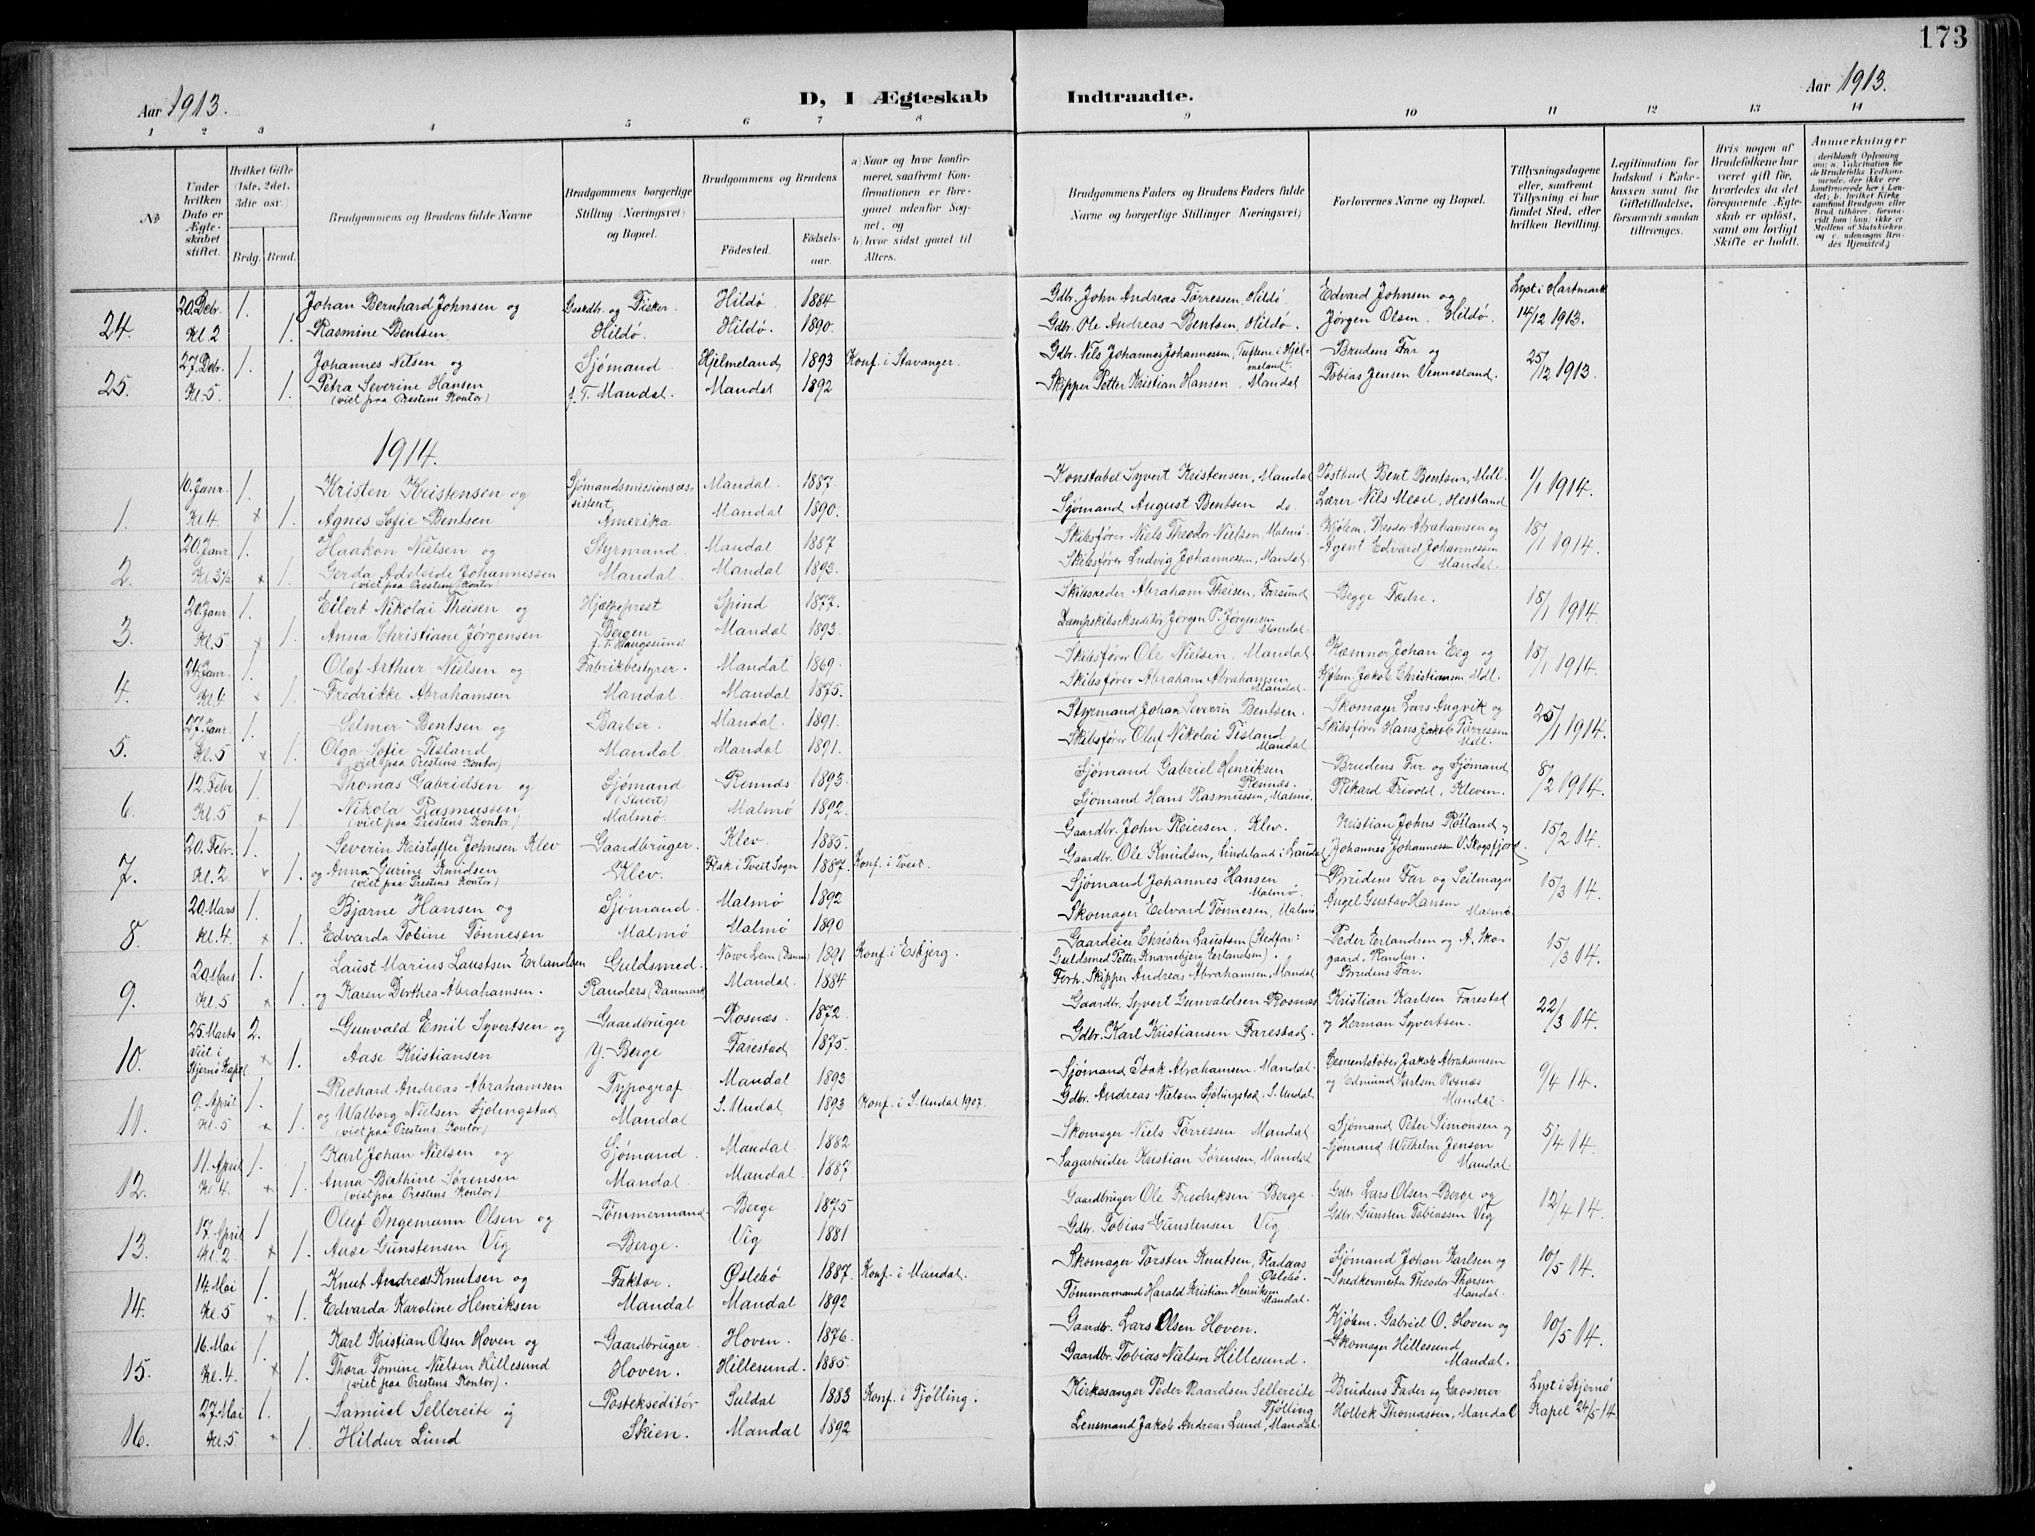 173
Aar 1913.
D, I Ægteskab Indtraadte.
Aar 1913.
1 2 3 4 5 6 7 8 9 10 11 12 13 14
№
Under hvilken Dato er Ægteskabet stiftet.
Hvilket Gifte (1ste, 2det, 3die osv.)
Brdg. Brud.
Brudgommens og Brudens fulde Navne
Brudgommens borgerlige Stilling (Næringsvei) og Bopæl.
Brudgommens og Brudens
Födested.
Födsels-aar.
a) Naar og hvor konfirmeret, saafremt Konfirmationen er foregaaet udenfor Sognet, og
b) hvor sidst gaaet til Alters.
Brudgommens Faders og Brudens Faders fulde Navne og borgerlige Stillinger Næringsvei)
Forlovernes Navne og Bopæl.
Tillysningsdagene eller, saafremt Tillysning ei har fundet Sted, efter hvilken Bevilling.
Legitimation for Indskud i Enkekassen samt for Giftetilladelse, forsaavidt saadan tiltrænges.
Hvis nogen af Brudefolkene har været gift før, hvorledes da det foregaaende Ægteskab er oplöst, samt om lovligt Skifte er holdt.
Anmerkninger
24. 20. Debr. Kl. 2 1. 1. Johan Bernhard Johnsen og Rasmine Bentsen | Gaardbr. og Fisker Hildø. | Hildø 1884 Hildø. 1890. | Gdbr. John Andreas Tørressen, Hildø. Gdbr. Ole Andreas Bentsen, Hildø. | Edvard Johnsen og Jørgen Olsen. Hildø. | Lyst i Hartmark 14/12 1913.
25. 27. Debr. Kl. 5. 1. 1. Johannes Nilsen og Petra Severine Hansen (viet paa Prestens Kontor) | Sjømand f. T. Mandal. | Hjelmeland 1893 Mandal 1892 | Konf. i Stavanger. | Gdbr. Nils Johannes Johannessen, Tuftene i Hjelmeland. Skipper Petter Kristian Hansen, Mandal | Brudens Far og Tobias Jensen Vennestand. | 25/12 1913.
1914.
1. 10. Janr. Kl. 4 1. 1. Kristen Kristensen og Agnes Sofie Bentsen | Sjømandsmissionsassistent, Amerika | Mandal. 1887. Mandal 1890. | Konstabel Syvert Kristensen, Mandal Sjømand August Bentsen do | Postbud Bent Bentsen, Mdl. Lærer Nils Mesel, Hestland | 1/1 1914.
2. 20. Janr. Kl. 3½ 1. 1. Haakon Nielsen og Gerda Adeleide Johannessen (viet paa Prestens Kontor | Styrmand. Mandal. | Mandal 1887 Mandal 1893. | Skibsfører Niels Theodor Nielsen, Malmø. Skibsfører Ludvig Johannessen, Mandal. | Kjøbm. Theodor Abrahamsen og Agent Edvard Johannessen Mandal. | 18/1 1914.
3. 20. Janr. Kl. 5 1. 1. Eilert Nikolai Theisen og Anna Christiane Jørgensen | Hjælpeprest Bergen f. T. Haugesund | Spind 1877. Mandal 1893. | Skibsreder Abraham Theisen, Farsund Dampskibsekseditør Jørgen P. Jørgensen Mandal. | Begge Fædre. | 18/1 1914.
4. 24. Janr. Kl. 4 1. 1. Olaf Arthur Nielsen og Fredrikke Abrahamsen | Fabrikbestyrer. Mandal. | Mandal 1869. Mandal 1875. | Skibsfører Ole Nielsen. Mandal Skibsfører Abraham Abrahamsen Mandal. | Kæmner Johan Eeg og Kjøbm. Jakob Christiansen, Mdl. | 18/1 1914.
5. 27. Janr. Kl. 5 1. 1. Selmer Bentsen og Olga Sofie Tisland (viet paa Prestens Kontor) | Barber. Mandal. | Mandal. 1891. Mandal 1891. | Styrmand Johan Severin Bentsen. Skibsfører Oluf Nikolai Tisland Mandal | Skomager Lars Angvik og Skibsfører Hans Jakob Tørressen Mdl. | 25/1 1914.
6. 12. Febr Kl. 5 1. 1. Thomas Gabrielsen og Nikola Rasmussen (viet paa Prestens Kontor) | Sjømand (Stuert) Malmø. | Rennæs 1893. Malmø 1892. | Sjømand Gabriel Henriksen Rennæs. Sjømand Hans Rasmussen, Malmø. | Brudens Far og Sjømand Rikard Frivold, Kleven. | 8/2 1914.
7. 20. Febr. Kl. 2 1. 1. Severin Kristoffer Johnsen Klev og Anna Gurine Knudsen (viet paa Prestens Kontor) | Gaardbruger. Klev. | Klev. 1885. Flak i Tveit Sogn 1887. | Konf. i Tveit. | Gaardbr. John Reiersen, Klev. Gaardbr. Ole Knudsen, Lindeland i Laudal | Kristian Johns Røiland og Johannes Johannessen V. Skogsfjord | 15/2 14.
8. 20. Mars Kl. 4. 1. 1. Bjarne Hansen og Edvarda Tobine Tønnesen | Sjømand. Malmø | Malmø 1892 Malmø 1890 | Sjømand Johannes Hansen Malmø. Skomager Edvard Tønnesen, Malmø | Brudens Far og Seilmager Angel Gustav Hansen Malmø. | 15/3 14.
9. 20. Mars Kl. 5 1. 1. Laust Marius Laustsen Erlandsen og Karen Dorthea Abrahamsen. | Guldsmed. Randers (Danmark) | Nørre Lem (Danm) 1891 Mandal. 1884 | Konf. i Esbjerg | Gaardeier Christen Laustsen (Stedfar: Guldsmed Petter Knarrebjerg Erlandsen). Forh. Skipper Andreas Abrahamsen, Mandal | Peder Erlandsen og A. Skogaard, Randers. Brudens Far. | 15/3 14.
10. 25. Marts Viet i Skjernø Kapel 2. 1. Gunvald Emil Syvertsen og Aase Kristiansen | Gaardbruger Y. Berge | Rosnæs 1872 Farestad 1875. | Gaardbr. Syvert Gunvaldsen Rosnæs Gdbr. Karl Kristiansen Farestad. | Kristian Karlsen Farestad og Herman Syvertsen. | 22/3 14.
11. 9. April Kl. 5 1. 1. Richard Andreas Abrahamsen og Walborg Nielsen Sjölingstad (viet paa Prestens Kontor) | Typograf Mandal | Mandal 1893 S. Undal 1893 | Konf. i S. Undal 1907. | Sjømand Isak Abrahamsen. Mandal Gdbr. Andreas Nielsen Sjölingstad, S. Undal | Cementstøber Jakob Abrahamsen og Edmund Karlsen Rosnæs Mandal. | 9/4 14.
12. 11. April Kl 4. 1. 1. Karl Johan Nielsen og Anna Berthine Sørensen (viet paa Prestens Kontor) | Sjømand. Mandal. | Mandal. 1882 Mandal. 1887 | Skomager Niels Tørressen Mandal Sagarbeider Kristian Sørensen, Mandal | Sjømand Peter Simonsen og Sjømand Wilhelm Jensen Mandal. | 5/4 14.
13. 17. April Kl. 2 1 1. Oluf Ingemann Olsen og Aase Gunstensen Vig | Tømmermand Berge. | Berge 1875 Vig 1881 | Gaardbruger Ole Fredriksen Berge Gdbr. Tobias Gunstensen Vig | Gdbr. Lars Olsen Berge og Gdbr. Gunsten Tobiassen Vig | 12/4 14.
14. 14. Mai Kl. 5 1. 1. Knut Andreas Knutsen og Edvarda Karoline Henriksen | Faktor. Mandal | Øslebø 1887. Mandal 1892 | Konf. i Mandal. | Skomager Torsten Knutsen, Fladaas Øslebø. Tømmermand Harald Kristian Henriksen Mandal. | Sjømand Johan Karlsen og Snedkermester Theodor Thorsen Mandal. | 10/5 14.
15. 16. Mai Kl. 4. 1. 1. Karl Kristian Olsen Hoven og Thora Tomine Nielsen Hillesund (viet paa Prestens Kontor). | Gaardbruger Hoven. | Hoven. 1876. Hillesund. 1885. | Gaardbr. Lars Olsen Hoven. Gaardbr. Tobias Nielsen Hillesund. | Kjøbm. Gabriel O. Hoven og Skomager Hillesund Mandal. | 10/5 14.
16. 27. Mai Kl. 5 1. 1. Samuel Sellereite og Hildur Lund | Postekseditör Skien. | Suldal 1883 Mandal 1892 | Konf. i Tjølling. | Kirkesanger Peder Baardsen Sellereite Tjølling Lensmand Jakob Andreas Lund, Mandal | Brudens Fader og Grosserer Holbek Thomassen, Mandal | Lyst i Skjernø Kapel 24/5 14.